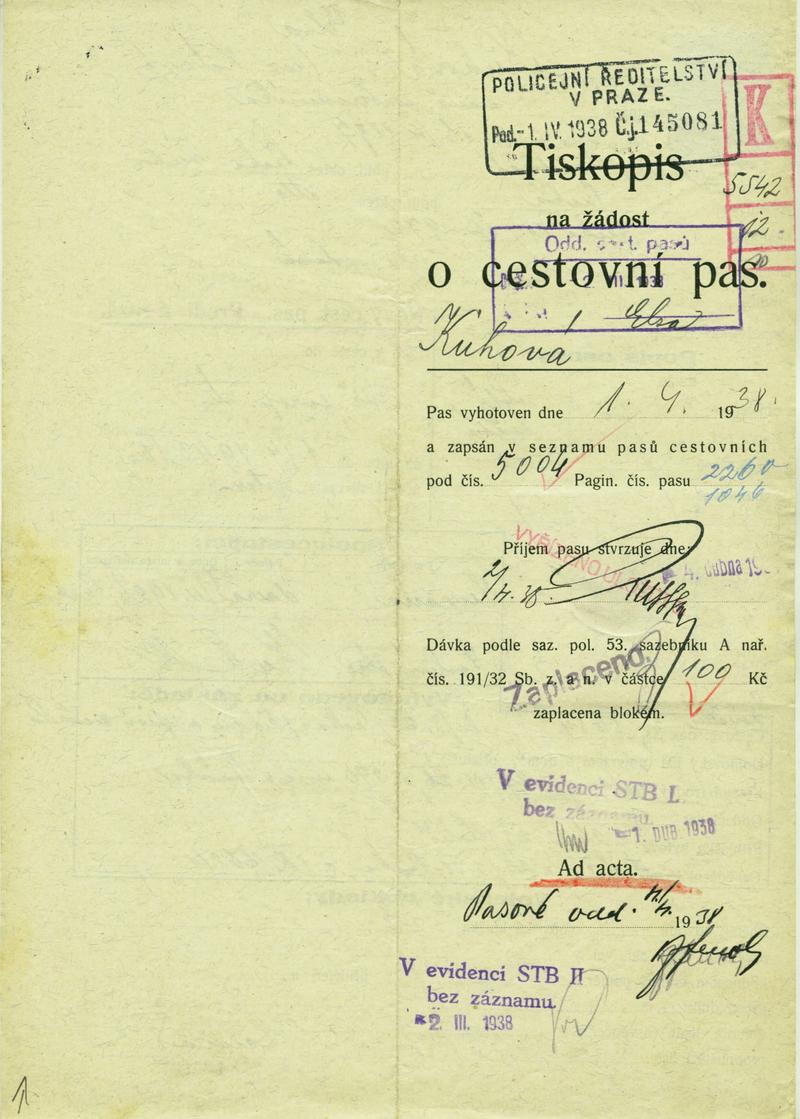 POLICEJNÍ ŘEDITELSTVÍ
V PRAZE.
Pod. -1. IV. 1938 Čj. 145081
K
5542
12
Tiskopis
na žádost
Odd. pasů
o cestovní pas.
Kuhová Elsa
Pas vyhotoven dne 1. 4. 1938.
a zapsán v seznamu pasů cestovních
pod čís. 5004 Pagin. čís. pasu 2260
1046
Příjem pasu stvrzuje dne:
4. dubna
2/4. 38.
Dávka podle saz. pol. 53. sazebníku A nař.
čís. 191/32 Sb. z. a n. v částce 100 Kč
Zaplaceno
zaplacena blokem.
V evidenci STB I.
bez záznamu
-1. DUB 1938
Ad acta.
Pasové odd. 1938
V evidenci STB II
bez záznamu.
2. III. 1938
1